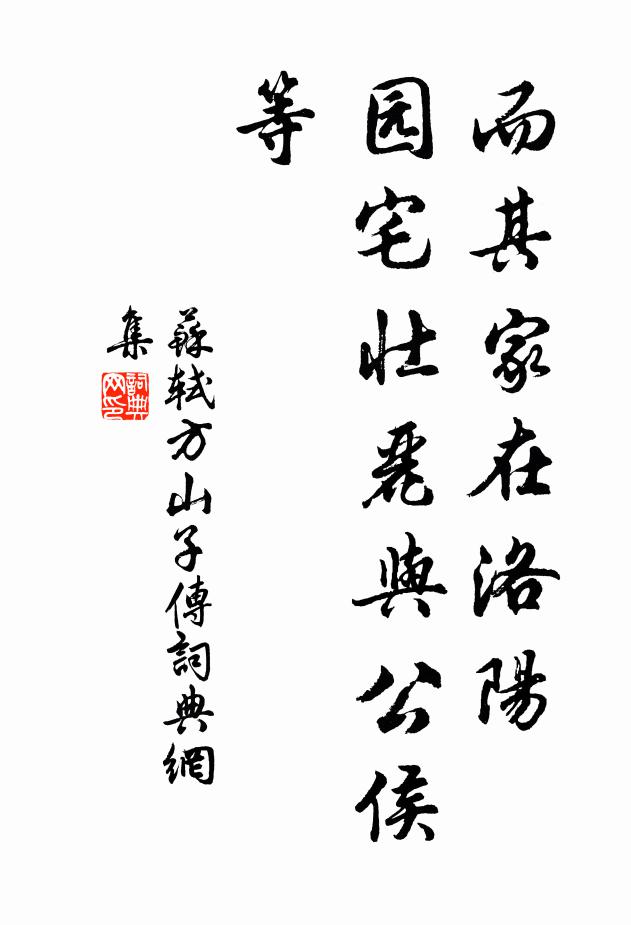 而其家在洛陽
园宅壮麗與公侯
等
蘇軾方山子傳詞典網
集
詞典网印